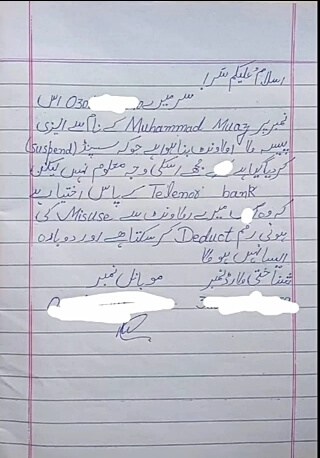 اسلام علیکم سر!
سر میرے 030 اس
نمبر پر Muhammad Muaz کے نام سے ایزی
پیسہ کا اکاونٹ بنا ہوا ہے جو کہ سسپنڈ (suspend)
کر دیا گیا ہے مجھے اسکی وجہ معلوم نہیں لیکن
Telenor bank کے پاس اختیار ہے
کہ وہ میرے اکاونٹ سے Misuse کی
ہوئی رقم Deduct کر سکتا ہے اور دوبارہ
ایسا نہیں ہو گا
شناختی کارڈ نمبر موبائل نمبر